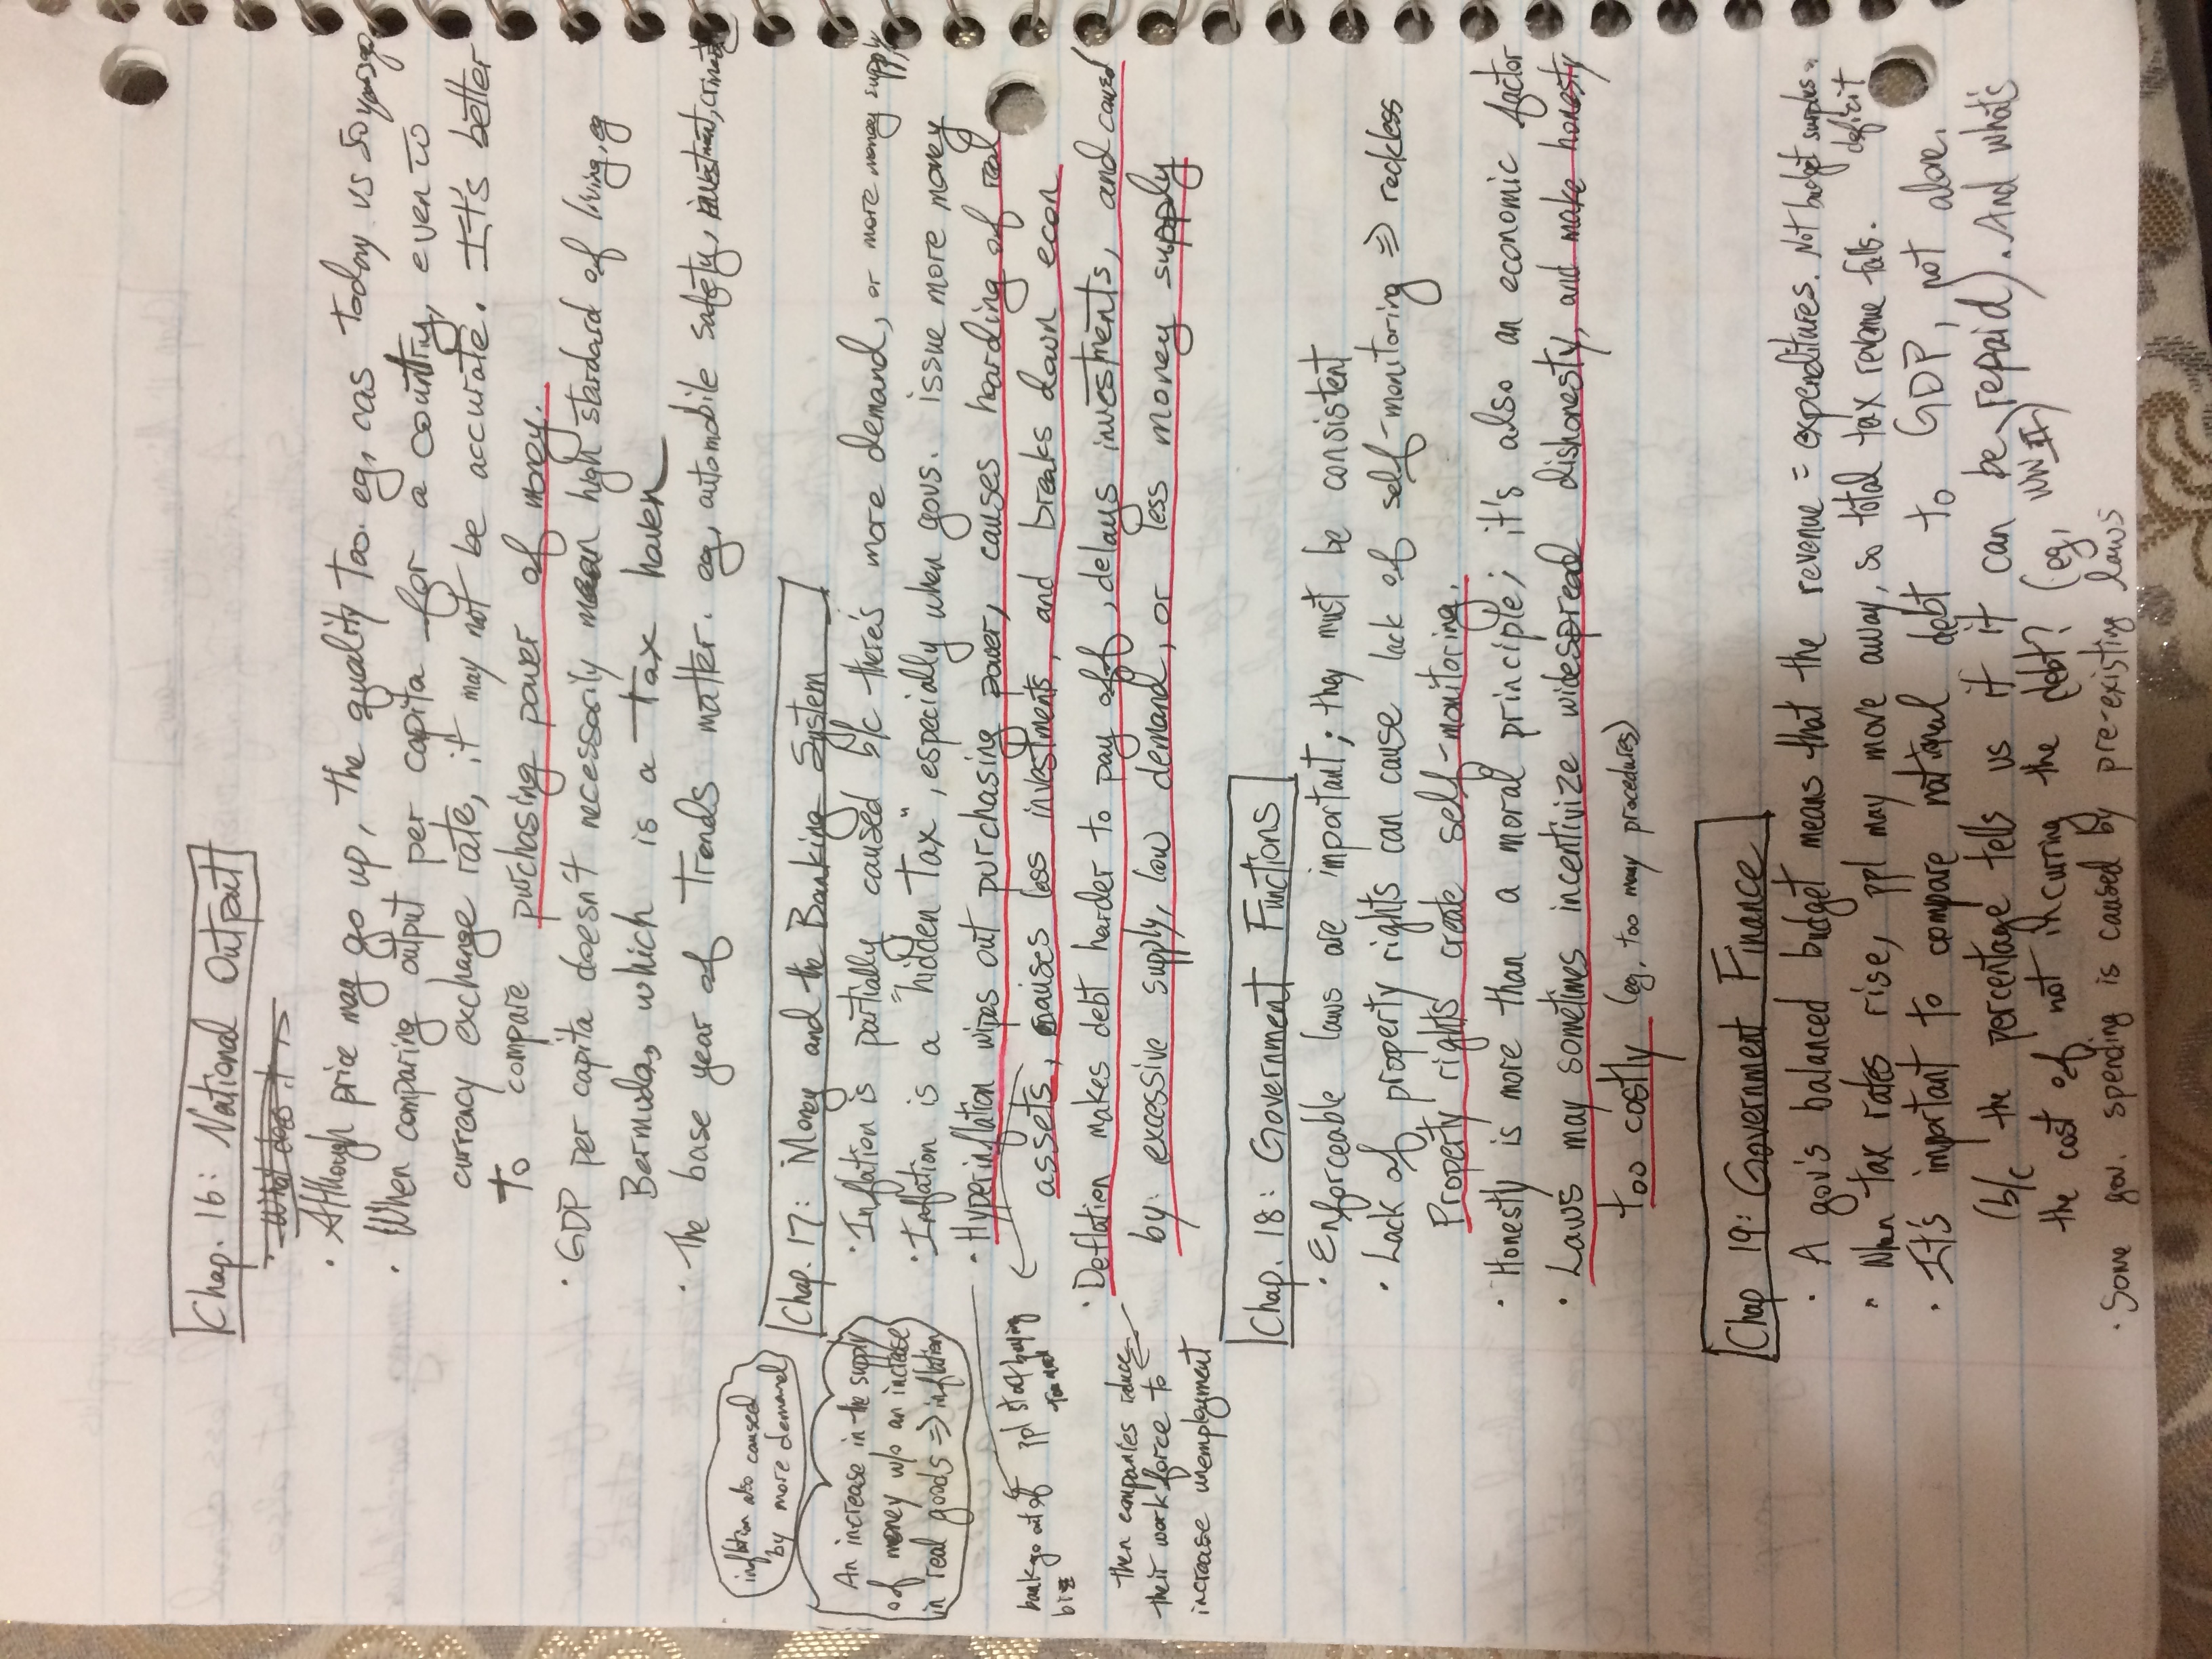 Chap. 16: National Output
· What does it
· Although price may go up, the quality too. eg, cas today vs 50 years ago
· When comparing output per capita for a country, even w
currency exchange rate, it may not be accurate. It's better
to compare purchasing power of money.
· GDP per capita doesn't necessarily mean high standard of living, eg
Bermuda, which is a tax haven
· The base year of trends matter. eg, automobile safety, investment, crimates
Chap. 17: Money and the Banking System
inflation also caused
by more demand
An increase in the supply
of money w/o an increase
in real goods => inflation
· Inflation is partially caused b/c there's more demand, or more money supply
· Inflation is a "hidden tax", especially when govs. issue more money
· Hyperinflation wipes out purchasing power, causes hoarding of real
assets, causes less investments, and breaks down econ
bank go out of
biz
ppl start buying
· Deflation makes debt harder to pay off, delays investments, and caused
by: excessive supply, low demand, or less money supply
then companies reduce
their work force to
increase unemployment
Chap. 18: Government Functions
· Enforceable laws are important; they must be consistent
· Lack of property rights can cause lack of self-monitoring => reckless
Property rights create self-monitoring.
· Honestly is more than a moral principle; it's also an economic factor
· Laws may sometimes incentivize widespread dishonesty, and make honesty
too costly (eg, too many procedures)
Chap 19: Government Finance
· A gov's balanced budget means that the revenue = expenditures. Not budget surplus or deficit
· When tax rates rise, ppl may move away, so total tax revenue falls.
· It's important to compare national debt to GDP, not alone.
(b/c the percentage tells us if it can be repaid). And what's
the cost of not incurring the debt? (eg, WWII)
· Some gov. spending is caused by pre-existing laws